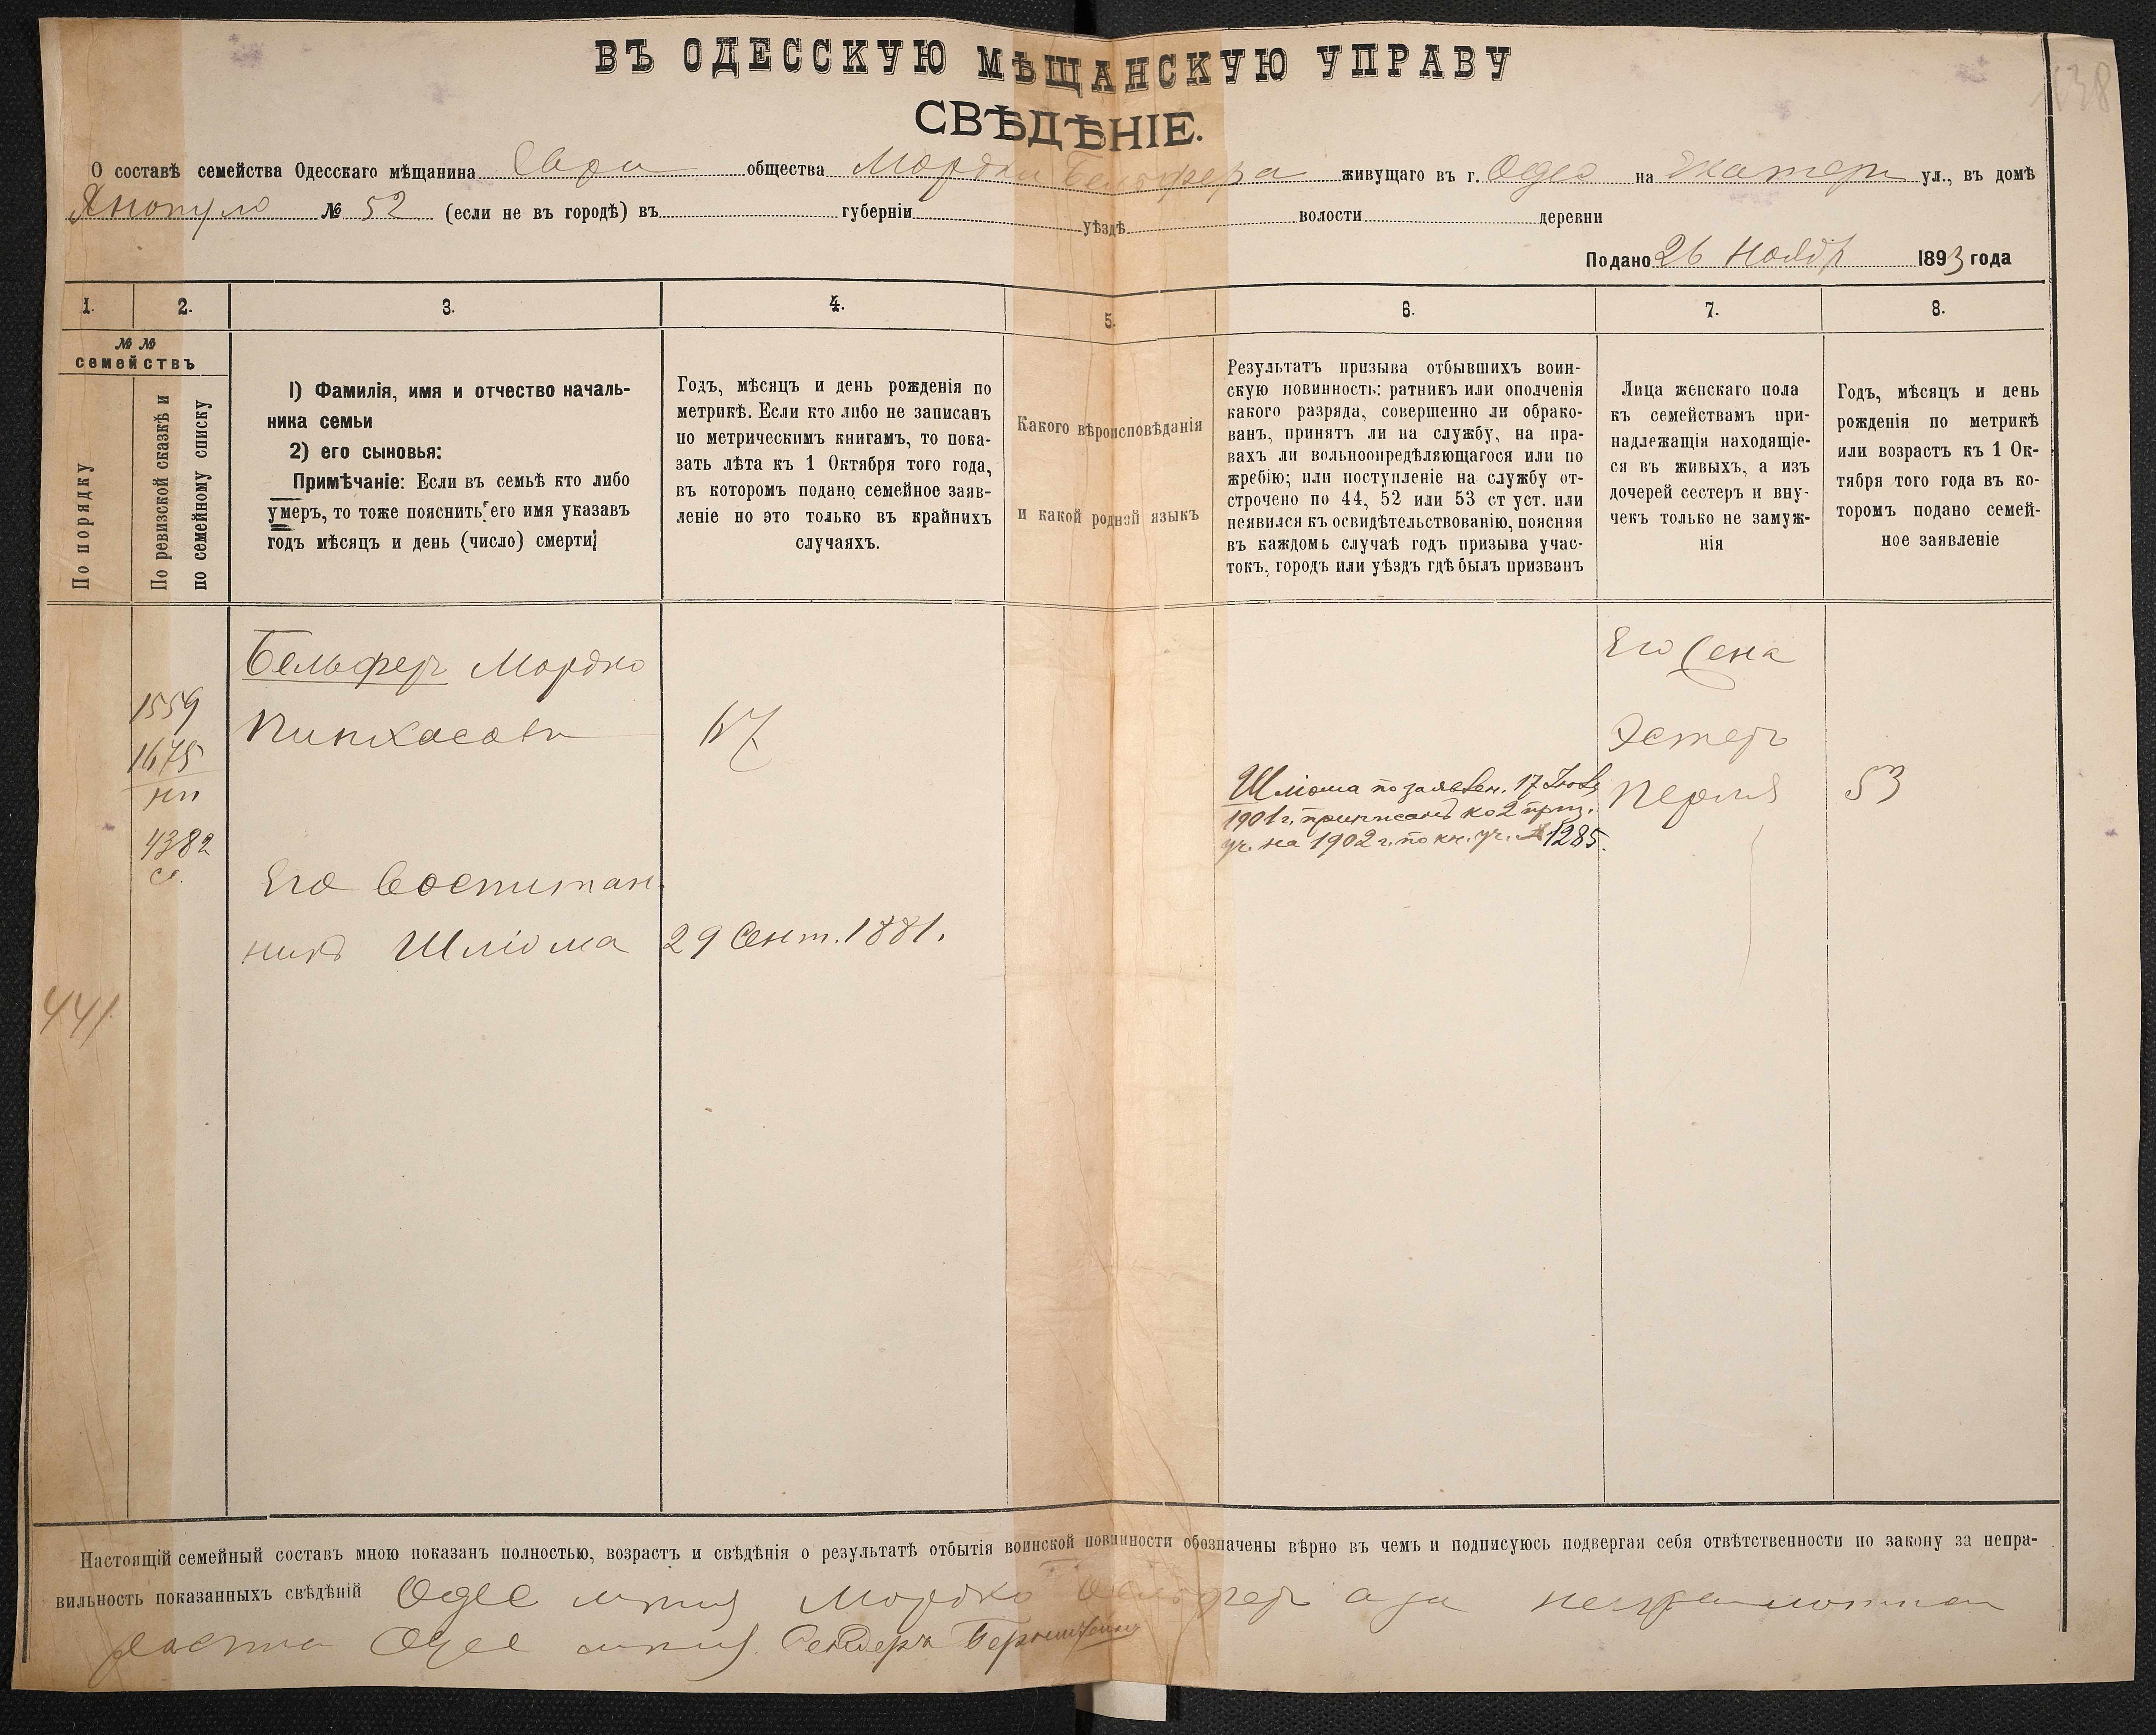 ВЪ ОДЕССКУЮ МѢЩАНСКУЮ УПРАВУ
СВѢДѢНІЕ.
О составѣ семейства Одесскаго мѣщанина Евре общества Мордки Бельфера живущаго въ г. Одес на Екатери ул., въ домѣ
Янопуло № 52 (если не въ городѣ) въ губерніи уѣздѣ волости деревни
Подано 26 Ноябр 1893 года
1. 2. 3. 4. 5. 6. 7. 8.
№ №
семействъ
По порядку
По ревизской сказкѣ и
по семейному списку
1) Фамилія, имя и отчество началь-
ника семьи
2) его сыновья:
Примѣчаніе: Если въ семьѣ кто либо
умеръ, то тоже пояснить его имя указавъ
годъ мѣсяцъ и день (число) смерти;
Годъ, мѣсяцъ и день рожденія по
метрикѣ. Если кто либо не записанъ
по метрическимъ книгамъ, то пока-
зать лѣта къ 1 Октября того года,
въ которомъ подано семейное заяв-
леніе но это только въ крайнихъ
случаяхъ.
Какого вѣроисповѣданія
и какой родной языкъ
Результатъ призыва отбывшихъ воин-
скую повинность: ратникъ или ополченія
какого разряда, совершенно ли обрако-
ванъ, принятъ ли на службу, на пра-
вахъ ли вольноопредѣляющагося или по
жребію; или поступленіе на службу от-
строчено по 44, 52 или 53 ст уст. или
неявился къ освидѣтельствованію, поясняя
въ каждомъ случаѣ годъ призыва учас-
токъ, городъ или уѣздъ гдѣ былъ призванъ
Лица женскаго пола
къ семействамъ при-
надлежащія находящіе-
ся въ живыхъ, а изъ
дочерей сестеръ и вну-
чекъ только не замуж-
нія
Годъ, мѣсяцъ и день
рожденія по метрикѣ
или возрастъ къ 1 Ок-
тября того года въ ко-
торомъ подано семей-
ное заявленіе
1559
1675
нп
4382
се.
441
Бельферъ Мордко
Пинхасовъ
67
Его воспитан-
никъ Шліома
29 Сент. 1881.
Шліома по заявлен. 17
1901 г. приписанъ ко 2 приз.
уч. на 1902 г. по кн. уч. № 1285.
Его жена
Эстеръ
Перля
53
Настоящій семейный составъ мною показанъ полностью, возрастъ и свѣдѣнія о результатѣ отбытія воинской повинности обозначены вѣрно въ чемъ и подписуюсь подвергая себя отвѣтственности по закону за непра-
вильность показанныхъ свѣдѣній Одес мѣщ Мордко Бельферъ а за неграмотнаго
Одес мѣщ